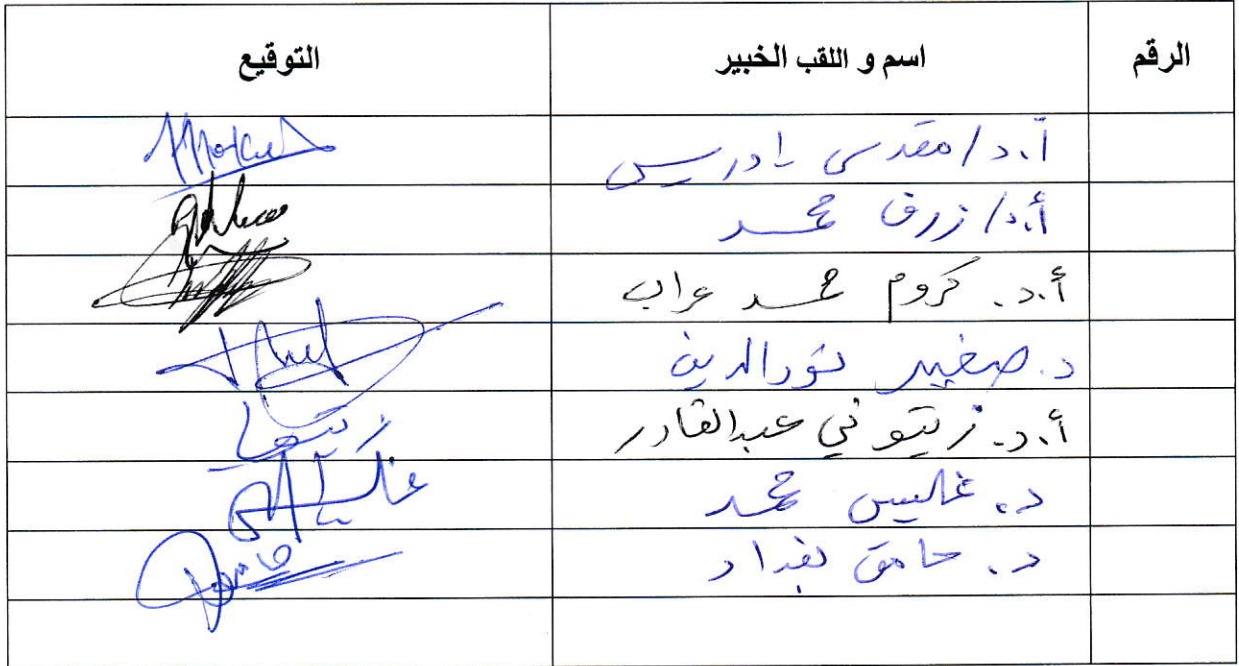 الرقم اسم و اللقب الخبير التوقيع
أ.د/مقدسي إدريس
أ.د/ زرق محمد
أ.د. كروم محمد عراب
د. صغير نورالدين
أ.د. زيتوني عبدالقادر
د. غليس محمد
د. حامق بغداد